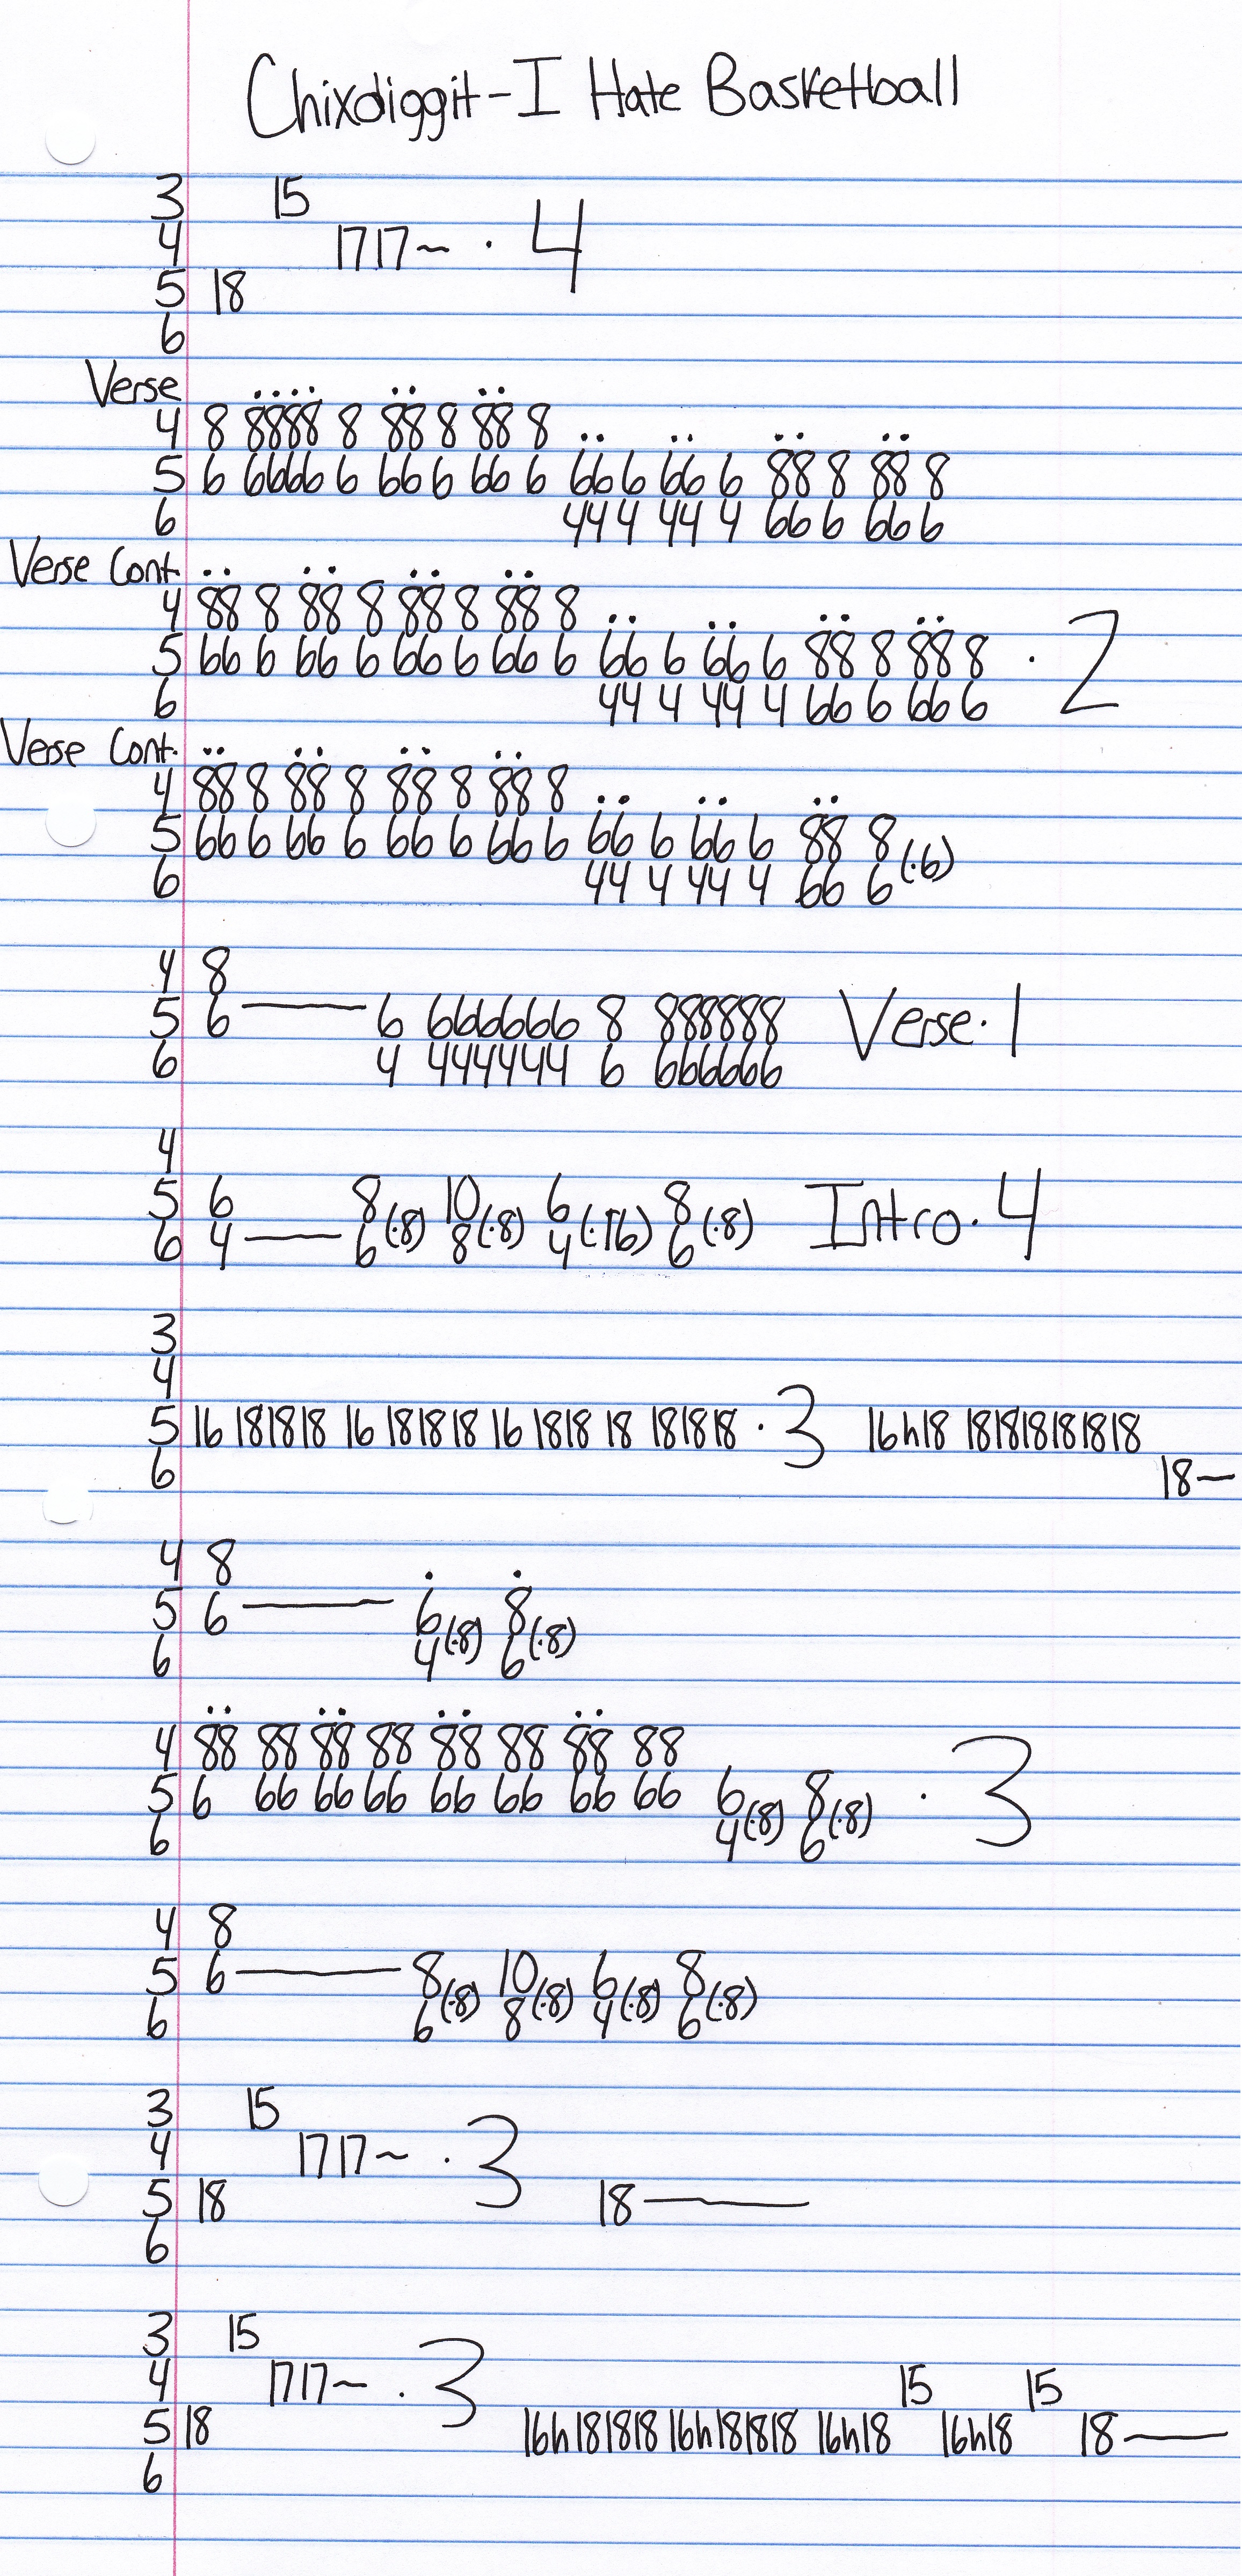 Chixdiggit-I Hate Basketball
3 15
4 1717~ · 4
5 18
6
Verse
4 8 8888 8 88 8 88 8
5 6 6666 6 66 6 66 6 66 6 66 6 88 8 88 8
6 44 4 44 4 66 6 66 6
Verse Cont.
4 88 8 88 8 88 8 88 8
5 66 6 66 6 66 6 66 6 66 6 66 6 88 8 88 8 · 2
6 44 4 44 4 66 6 66 6
Verse Cont.
4 88 8 88 8 88 8 88 8
5 66 6 66 6 66 6 66 6 66 6 66 6 88 8 (·6)
6 44 4 44 4 66 6
4 8
5 6 — 6 666666 8 888888 Verse·1
6 4 444444 6 666666
4
5 6 8 10 6 8 Intro·4
6 4 — 6(·8) 8(·8) 4(·16) 6(·8)
3
4
5 16 181818 16 181818 16 1818 18 181818 · 3 16h18 181818181818
6 18~
4 8
5 6 — 6 8
6 4(·8) 6(·8)
4 88 88 88 88 88 88 88 88
5 6 66 66 66 66 66 66 66 6 8 · 3
6 4(·8) 6(·8)
4 8
5 6 — 8 10 6 8
6 6(·8) 8(·8) 4(·8) 6(·8)
3 15
4 1717~ · 3
5 18 18 —
6
3 15
4 1717~ · 3 15 15
5 18 16h181818 16h181818 16h18 16h18 18 —
6